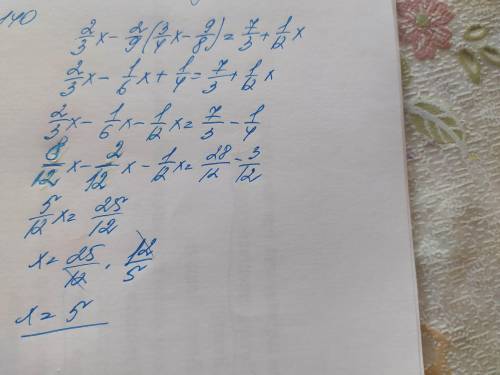 140
2/3 x - 2/9 (3/4 x - 9/8) = 7/3 + 1/12 x
2/3 x - 1/6 x + 1/4 = 7/3 + 1/12 x
2/3 x - 1/6 x - 1/12 x = 7/3 - 1/4
8/12 x - 2/12 x - 1/12 x = 28/12 - 3/12
5/12 x = 25/12
x = 25/12 · 12/5
x = 5